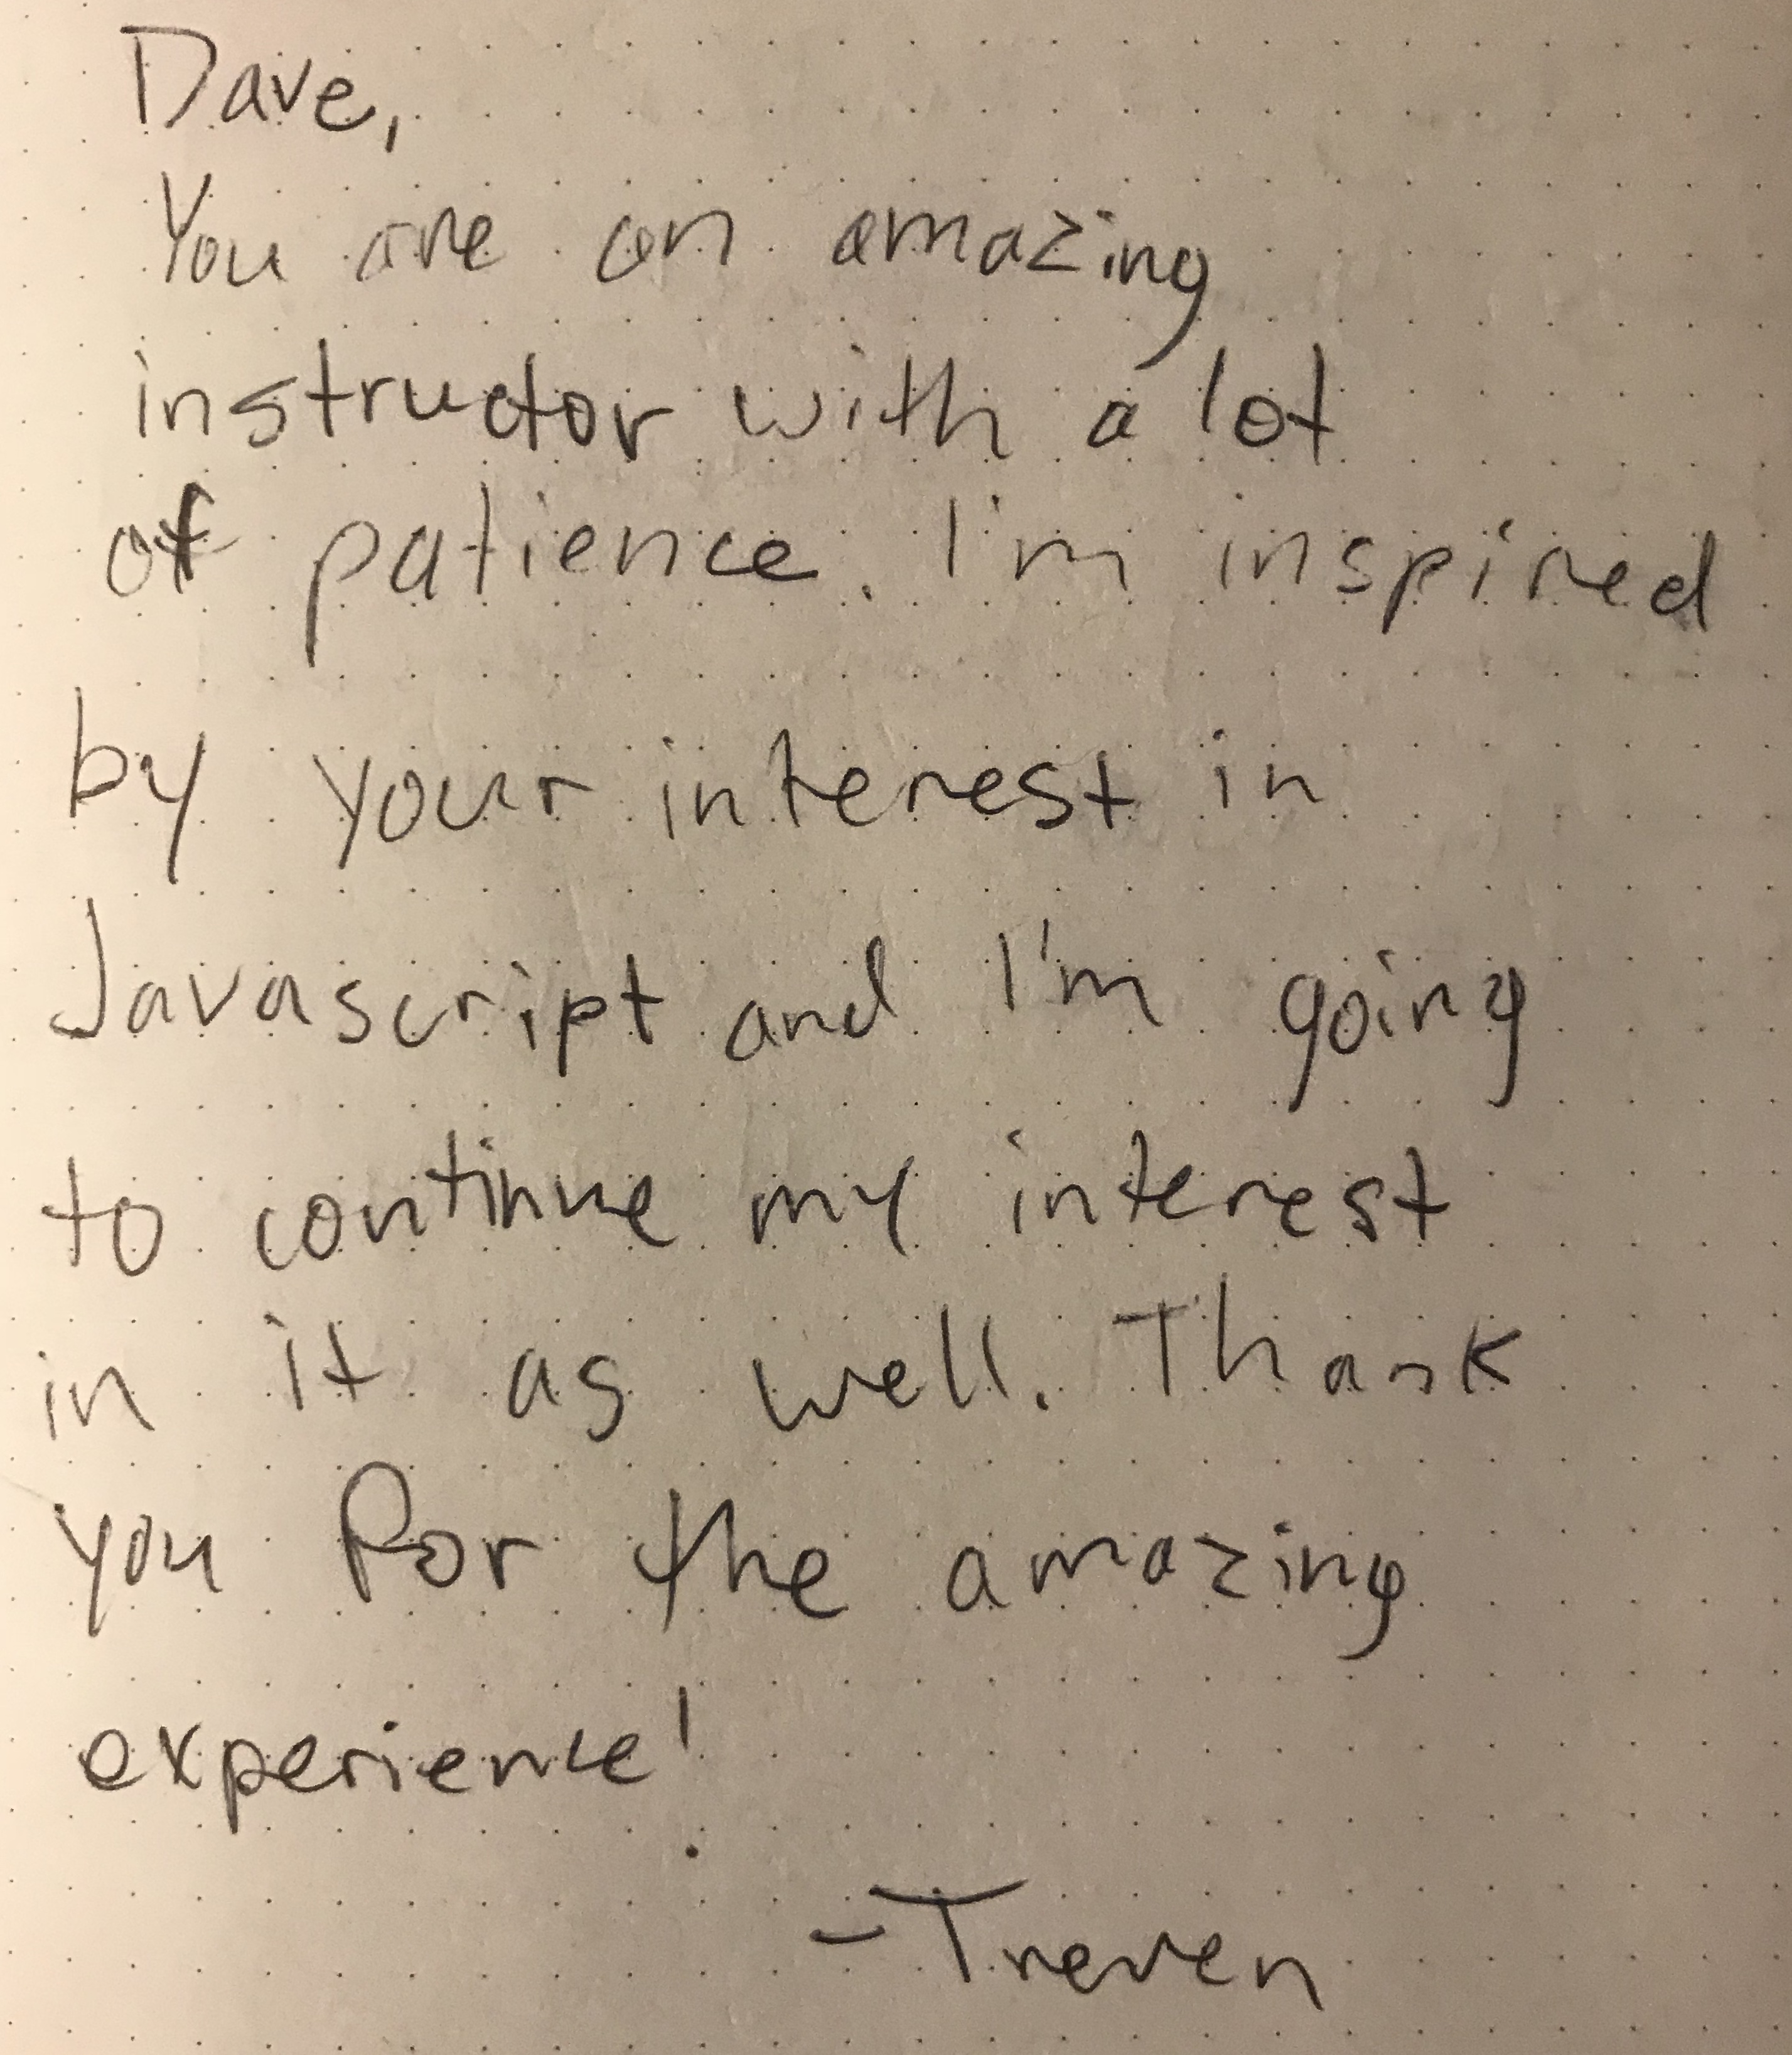 Dave,
You are an amazing
instructor with a lot
of patience. I'm inspired
by your interest in
Javascript and I'm going
to continue my interest
in it as well. Thank
you for the amazing
experience!
-Treven